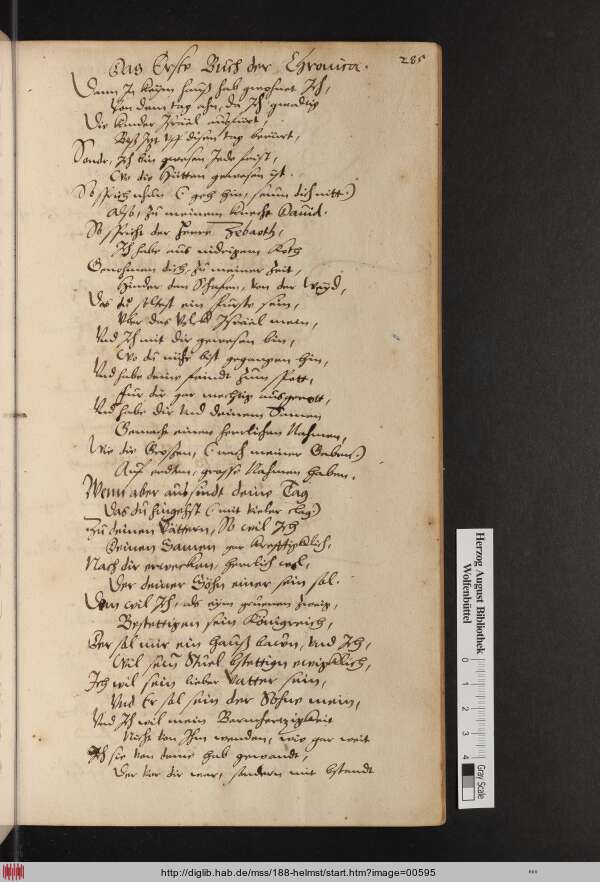 Das Erste Buch der Chronica.
285
Dann In keym hauß hab gewohnet Ich,
Von dem tag ahn, da Ich gnedig
Die kinder Israel außfürt,
Biß Jtzt vff disen tag berürt,
Sonder, Ich bin gewesen Jede frist,
Wo die Hütten gewesen ist.
So sprich nhun (geh hin, seum dich nitt)
Alßo, zu meinem knecht Dauid.
So spricht der Herre Zebaoth,
Ich habe aus nidrigem Koth
Genohmen dich, zu meiner Zeit,
Hinder den Schafen, von der Weyd,
Das du soltest ein Fürste sein,
Vber das Volck Israel mein,
Vnd Ich mit dir gewesen bin,
Wo du nuhr bist gegangen hin,
Vnd habe deine feindt zum spott,
Für dir gar mechtig außgerott,
Vnd habe dir Vnd deinem Samen
Gemacht einen herrlichen Nahmen,
Wie die Grossen, (nach meiner Gaben)
Auf erdten, grosse Nahmen haben.
Wenn aber aus sindt deine Tag
Das du hingehst (mit vieler clag)
Zu deinen Vättern, So wil Ich
Deinen Samen gar krefftigklich,
Nach dir erwecken, herrlich wol,
Der deiner Söhn einer sein sol.
Dem wil Ich, als eym gruenen zweig,
Bestettigen sein Königreich,
Der sol mir ein hauß bawen, Vnd Ich,
Wil sein Stuel bstettign ewigklich,
Ich wil sein lieber Vatter sein,
Vnd Er sol sein der Sohne mein,
Vnd Ich wil mein Barmhertzigkeit
Nicht von Ihm wenden, wie gar weit
Ich sie von deme hab gewandt,
Der vor dir war, sondern mit bstandt
Herzog August Bibliothek
Wolfenbüttel
0 1 2 3 4
Gray Scale
http://diglib.hab.de/mss/188-helmst/start.htm?image=00595